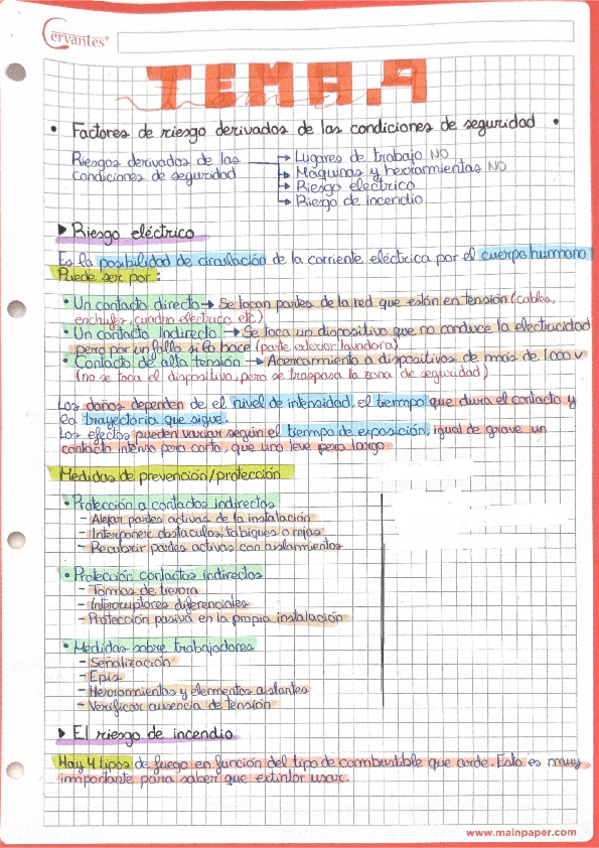 Cervantes
TEMA.9
• Factores de riesgo derivados de las condiciones de seguridad •
Riesgos derivados de las → Lugares de trabajo NO
condiciones de seguridad → Máquinas y herramientas NO
→ Riesgo eléctrico
→ Riesgo de incendio
▶ Riesgo eléctrico
Es la posibilidad de circulación de la corriente eléctrica por el cuerpo humano
Puede ser por:
• Un contacto directo → Se tocan partes de la red que están en tensión (cables,
enchufes, cuadro eléctrico etc)
• Un contacto Indirecto → Se toca un dispositivo que no conduce la electricidad
pero por un fallo si lo hace (parte exterior lavadora)
• Contacto de alta tensión → Acercamiento a dispositivos de más de 1.000 v
(no se toca el dispositivo, pero se traspasa la zona de seguridad)
Los daños dependen de el nivel de intensidad, el tiempo que dura el contacto y
la trayectoria que sigue.
Los efectos pueden variar según el tiempo de exposición, igual de grave un
contacto intenso pero corto, que uno leve pero largo
Medidas de prevención/protección
• Protección a contactos indirectos
- Alejar partes activas de la instalación
- Interponer obstáculos, tabiques o rejas
- Recubrir partes activas con aislamientos
• Protección contactos indirectos
- Tomas de tierra
- Interruptores diferenciales
- Protección pasiva en la propia instalación
• Medidas sobre trabajadores
- Señalización
- Epis
- Herramientas y elementos aislantes
- Verificar ausencia de tensión
▶ El riesgo de incendio
Hay 4 tipos de fuego en función del tipo de combustible que arde. Esto es muy
importante para saber que extintor usar.
www.mainpaper.com